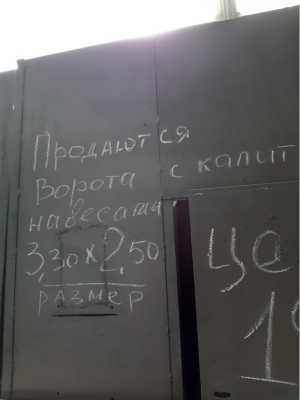 Продаются
ворота с калит
навесами
3,30 х 2,50
размер
ЦЕ
1